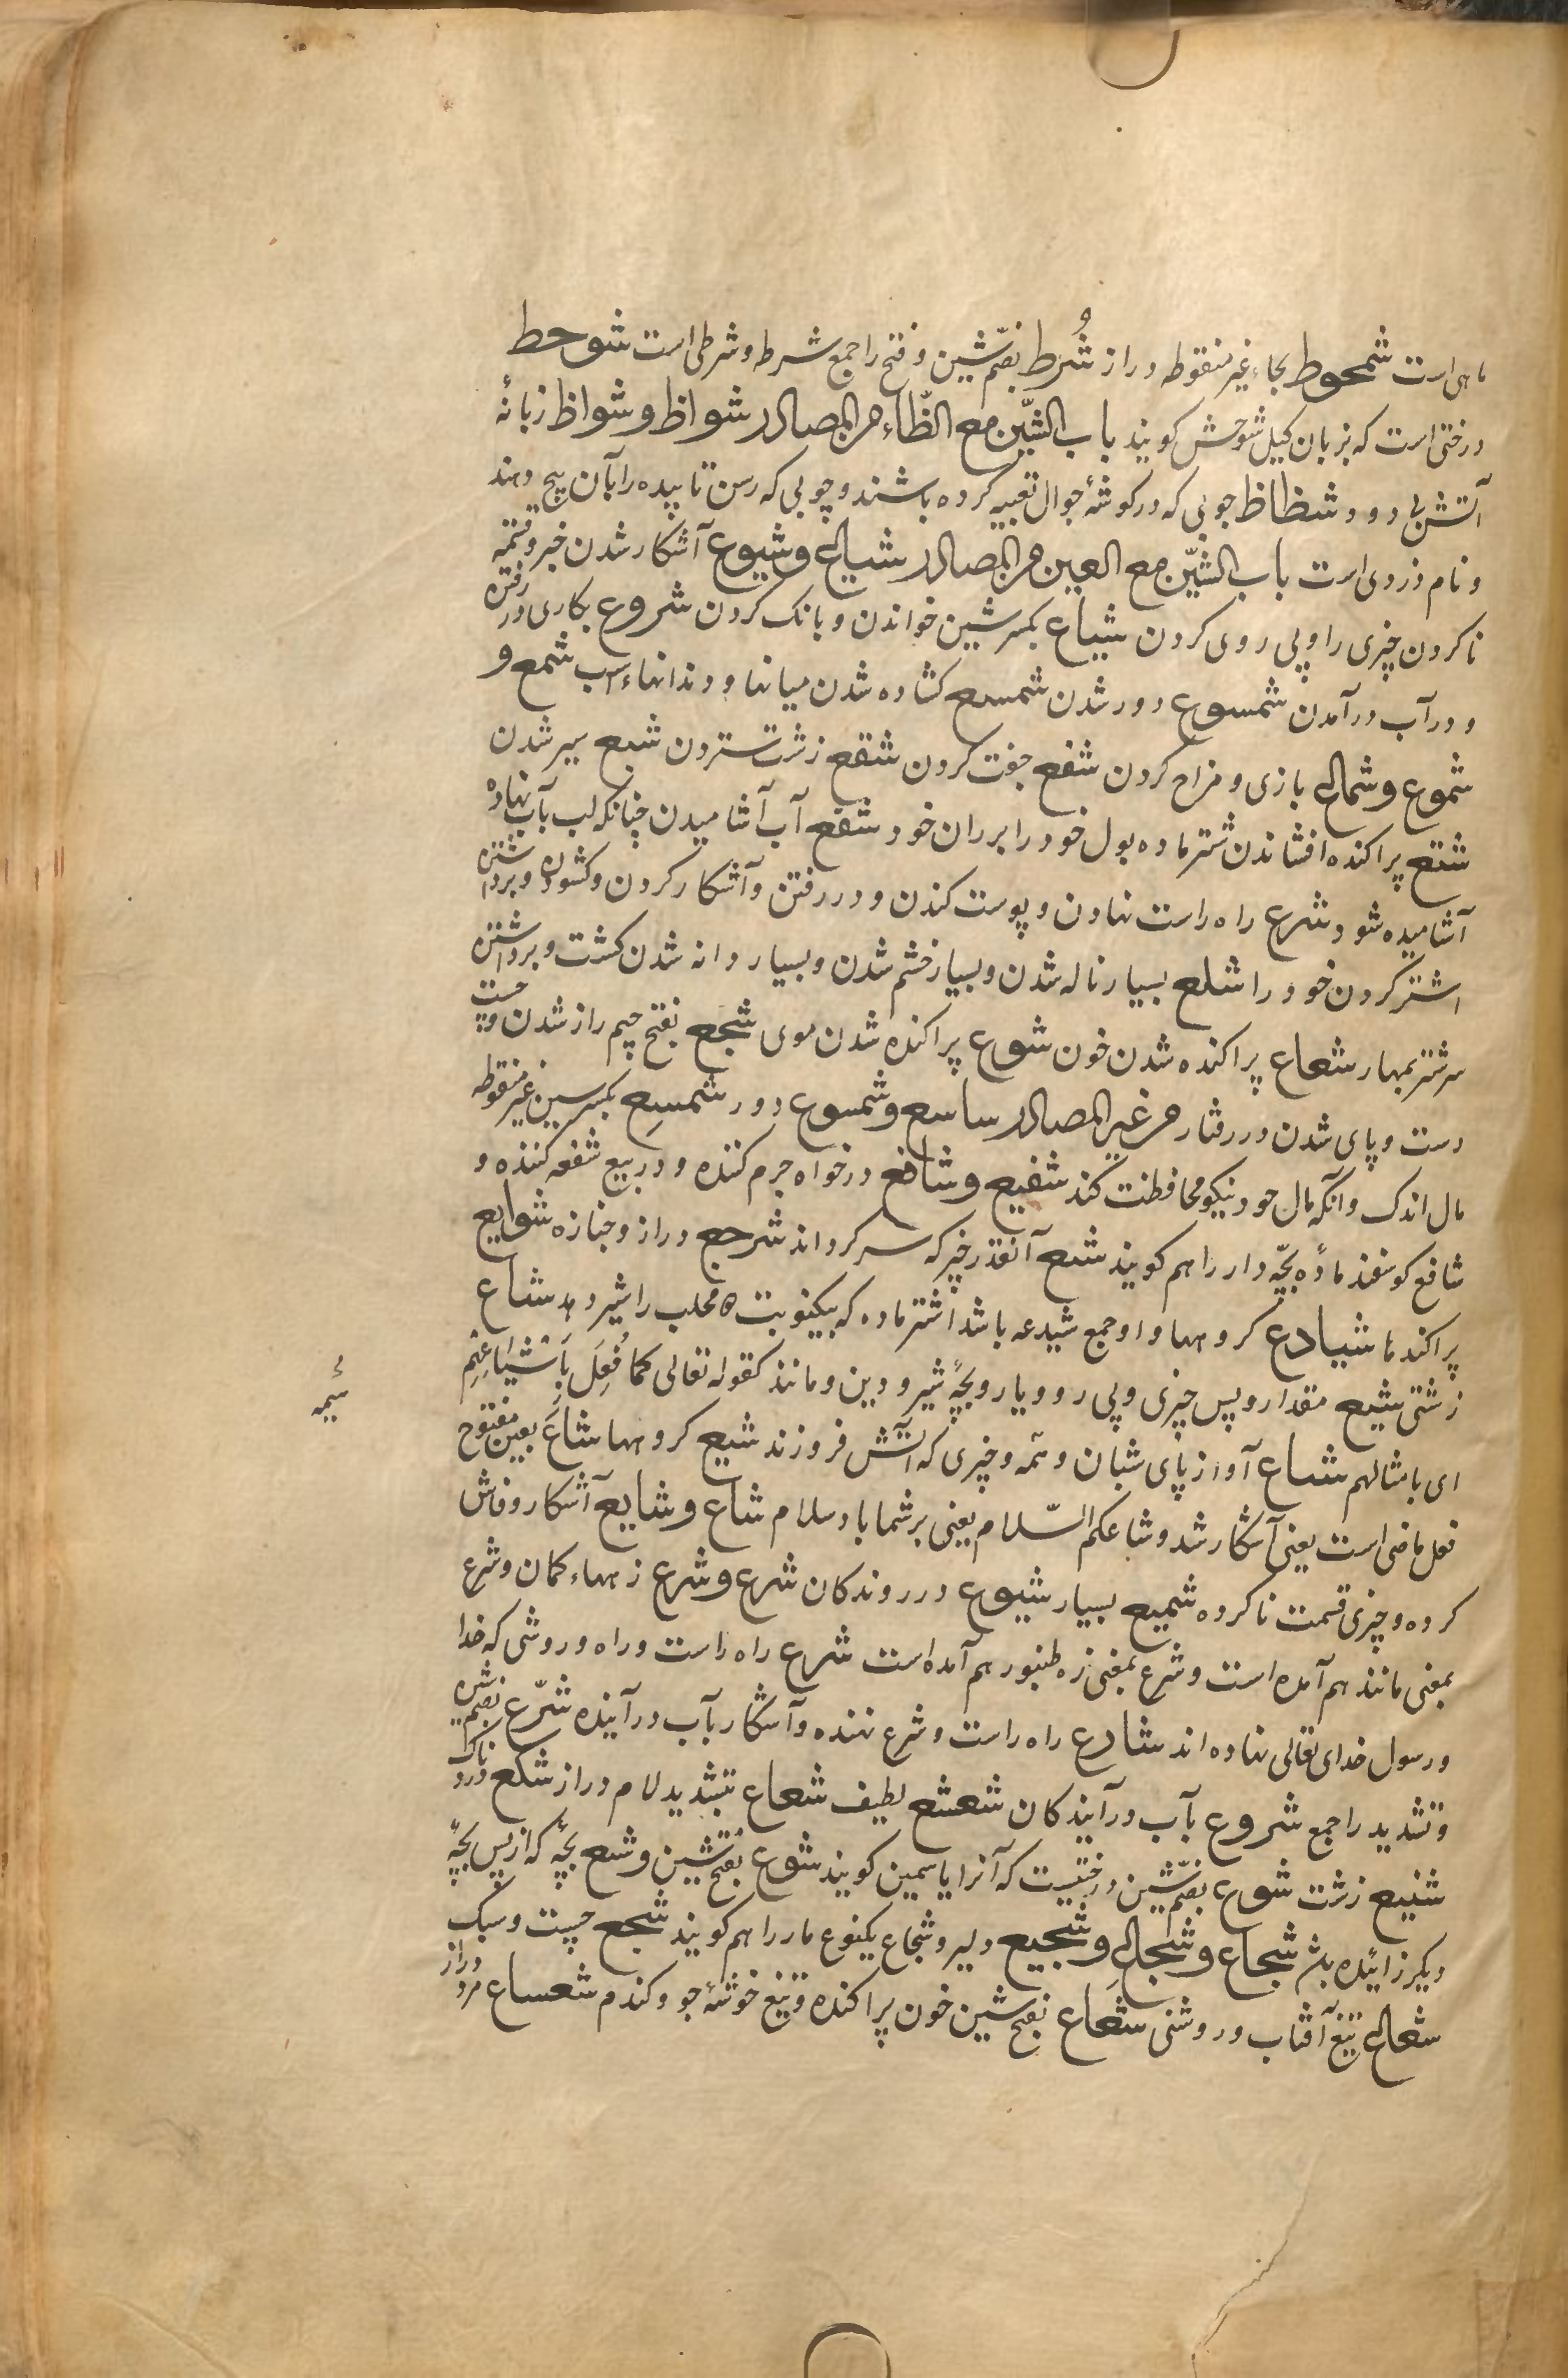 ماهی است شمحوط بحاء غیر منقوطه دراز شُرط بضمّ شین و فتح را جمع شرطه و شرطی است شوحط
درختی است که بزبان کیل شوحش کویند باب الشّین مع الظّاء من المصادر شواظ و شواظ زبانهٔ
آتش بی دود شظاظ چوبی که در کوشهٔ جوال تعبیه کرده باشند و چوبی که رسن تابیده را بآن پیچ دهند
و نام دزدی است باب الشّین مع العین من المصادر شیاع و شیوع آشکار شدن خبر و قسمه
ناکردن چیزی را و پی روی کردن شیاع بکسر شین خواندن و بانک کردن شروع بکاری در رفتن
و در آب درآمدن شسوع دور شدن شسع کشاده شدن میانها و دندانهاء اسب شمع و
شموع و شماع بازی و مزاح کردن شفع جفت کردن شقع زشت ستردن شبع سیر شدن
شتع پراکنده افشاندن شتر ماده بول خود را بر ران خود شقع آب آشامیدن چنانکه لب بآب نهاده
آشامیده شود شرع راه راست نهادن و پوست کندن و در رفتن و آشکار کردن و کشودن و برداشتن
اشتر کردن خود را شلع بسیار ناله شدن و بسیار خشم شدن و بسیار دانه شدن کشت و برداشتن
سر شتر بمهار شعاع پراکنده شدن خون شوع پراکنده شدن موی شجع بفتح جیم دراز شدن و چست
دست و پای شدن در رفتار من غیر المصادر ساسع و شسوع دور شسع بکسر سین غیر منقوطه
مال اندک و آنکه مال خود نیکو محافظت کند شفیع و شافع درخواه جرم کننده و در بیع شفعه کننده و
شافع کوسفند مادهٔ بچّه دار را هم کویند شبع آنقدر خیر که سیر کرداند شرجع دراز و جنازه شوایع
پراکندها شیادع کروهها و او جمع شیدعه باشد اشتر ماده که بیکنوبت ۵ محلب را شیر دهد شناع
زشتی شیع مقدار و پس چیزی و پی رو و یار و بچّهٔ شیر و دین و مانند کقوله تعالی کما فُعِلَ بِاَشْیَاعِهِم
ای بامثالهم شیاع آواز پای شبان و نمه و چیزی که آتش فروزند شیع کروهها شاعَ بعین مفتوح
فعل ماضی است یعنی آشکار شد و شاعکم السّلام یعنی بر شما باد سلام شاع و شایع آشکار و فاش
کرده و چیزی قسمت ناکرده شمیع بسیار شیوع در روندکان شرع و شرع زههاء کمان و شرع
بمعنی مانند هم آمده است و شرع بمعنی زه طنبور هم آمده است شرع راه راست و راه و روشی که خدا
و رسول خدای تعالی نهاده اند شارع راه راست و شرع نهنده و آشکار بآب درآینده شرّع بضم شین
و تشدید را جمع شروع بآب درآیندکان شعشع لطیف شعاع بتشدید لام دراز شکع دردناک
شنیع زشت شوع بضمّ شین درختیست که آنرا یاسمین کویند شوع بفتح شین و شیع بچّه که از پس بچّهٔ
دیکر زائیده باشد شجاع و شجاع و شجیع دلیر و شجاع یکنوع مار را هم کویند شجع چست و سبک
شعاع تیغ آفتاب و روشنی شَعَاع بفتح شین خون پراکنده و تیغ خوشهٔ جو و کندم شعساع مرد دراز